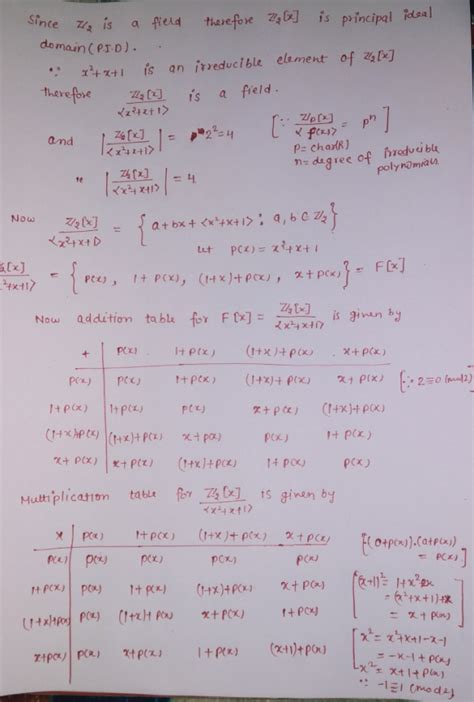 Since ℤ₂ is a field therefore ℤ₂[x] is principal ideal
domain (P.I.D).
∵ x²+x+1 is an irreducible element of ℤ₂[x]
therefore ℤ₂[x]/<x²+x+1> is a field.
and |ℤ₂[x]/<x²+x+1>| = 2² = 4 [∵ ℤp[x]/<p(x)> = pⁿ]
p = char(R)
n = degree of irreducible polynomials
" |ℤ₂[x]/<x²+x+1>| = 4
Now ℤ₂[x]/<x²+x+1> = {a+bx+<x²+x+1> : a, b ∈ ℤ₂}
let p(x) = x²+x+1
ℤ₂[x]/<x²+x+1> = {p(x), 1+p(x), (1+x)+p(x), x+p(x)} = F[x]
Now addition table for F[x] = ℤ₂[x]/<x²+x+1> is given by
+ p(x) 1+p(x) (1+x)+p(x) x+p(x)
p(x) p(x) 1+p(x) (1+x)+p(x) x+p(x) [∵ 2≡0 (mod 2)]
1+p(x) 1+p(x) p(x) x+p(x) (1+x)+p(x)
(1+x)+p(x) (1+x)+p(x) x+p(x) p(x) 1+p(x)
x+p(x) x+p(x) (1+x)+p(x) 1+p(x) p(x)
Multiplication table for ℤ₂[x]/<x²+x+1> is given by
x p(x) 1+p(x) (1+x)+p(x) x+p(x)
p(x) p(x) p(x) p(x) p(x)
1+p(x) p(x) 1+p(x) (1+x)+p(x) x+p(x)
(1+x)+p(x) p(x) (1+x)+p(x) x+p(x) 1+p(x)
x+p(x) p(x) x+p(x) 1+p(x) (x+1)+p(x)
[(0+p(x)).(a+p(x))
= p(x)]
[(x+1)² = 1+x²
= (x²+x+1)+x
= x+p(x)
[x² = x²+x+1-x-1
= -x-1+p(x)
x² = x+1+p(x)
∵ -1≡1 (mod 2)